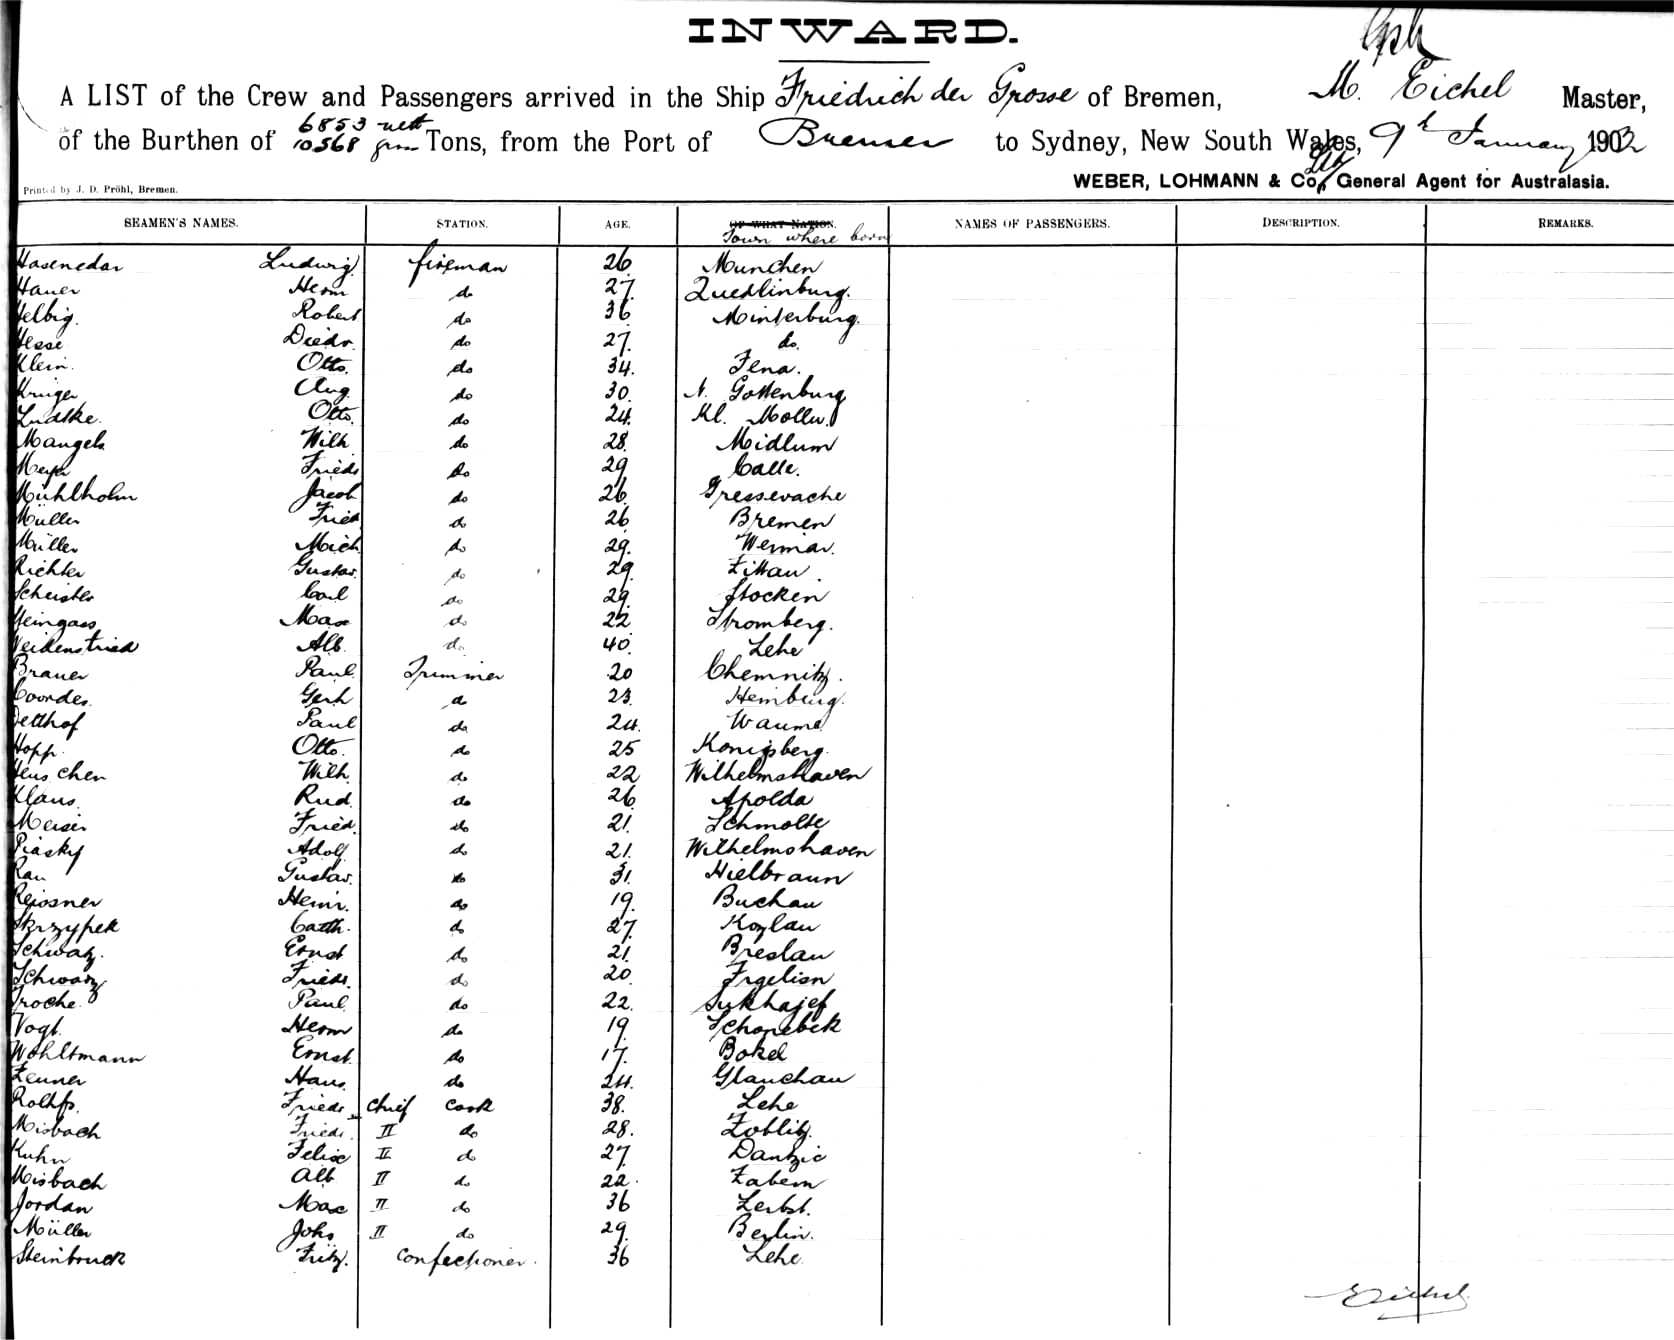 INWARD.
A LIST of the Crew and Passengers arrived in the Ship Friedrich der Grosse of Bremen, M. Eichel Master,
of the Burthen of 6853 nett 10568 Tons, from the Port of Bremen to Sydney, New South Wales, 9th January 1903
Printed by J. D. Pröhl, Bremen.
WEBER, LOHMANN & Co, General Agent for Australasia.
SEAMEN'S NAMES. STATION. AGE. OF WHAT NATION. NAMES OF PASSENGERS. DESCRIPTION. REMARKS.
Town where born
Hasenedar Ludwig fireman 26 Munchen
Hauer Herm do 27 Quedlinburg.
Helbig. Robert do 36 Minterburg.
Hesse Diedr. do 27. do.
Klein. Otto. do 34. Jena.
Kruger Aug. do 30. N. Gottenburg
Ludtke. Otto. do 24.
Mangels Wilh do 28. Midlum
Meyer Friedr do 29 Calle.
Mühlholm Jacob do 26.
Müller Fried do 26 Bremen
Müller Mich. do 29. Weimar.
Richter Gustav. do 29. Zittau.
Carl do 29 Stocken
Steingass Max do 22 Stromberg.
Weidenstried Alb. do 40. Lehe
Brauer Paul. Trimmer 20 Chemnitz.
Coordes. Gerh do 23.
Detthof Paul do 24.
Hopp. Otto. do 25 Konigsberg.
Heuschen Wilh. do 22 Wilhelmshaven
Klaus. Rud. do 26. Apolda
Meier Fried. do 21. Schmolte
Piasky Adolf do 21. Wilhelmshaven
Rau Gustav. do 31. Hielbraun
Reissner Heinr. do 19. Buchau
Skrzypek Cath. do 27. Kozlau
Schwarz. Ernst do 21. Breslau
Schwarz Friedr. do 20.
Troche. Paul do 22.
Vogt. Herm do 19. Schonebek
Wohltmann Ernst. do 17. Bokel
Zeuner Hans. do 24. Glauchau
Rolffs. Friedr chief cook 38. Lehe
Misbach Friedr. II do 28. Zoblitz.
Kuhn Felix II do 27. Dantzic
Misbach Alb. II do 22. Zabern
Jordan Max II do 36 Zerbst.
Müller Johs II do 29. Berlin.
Steinbruck Fritz. confectioner. 36 Lehe.
Eichel